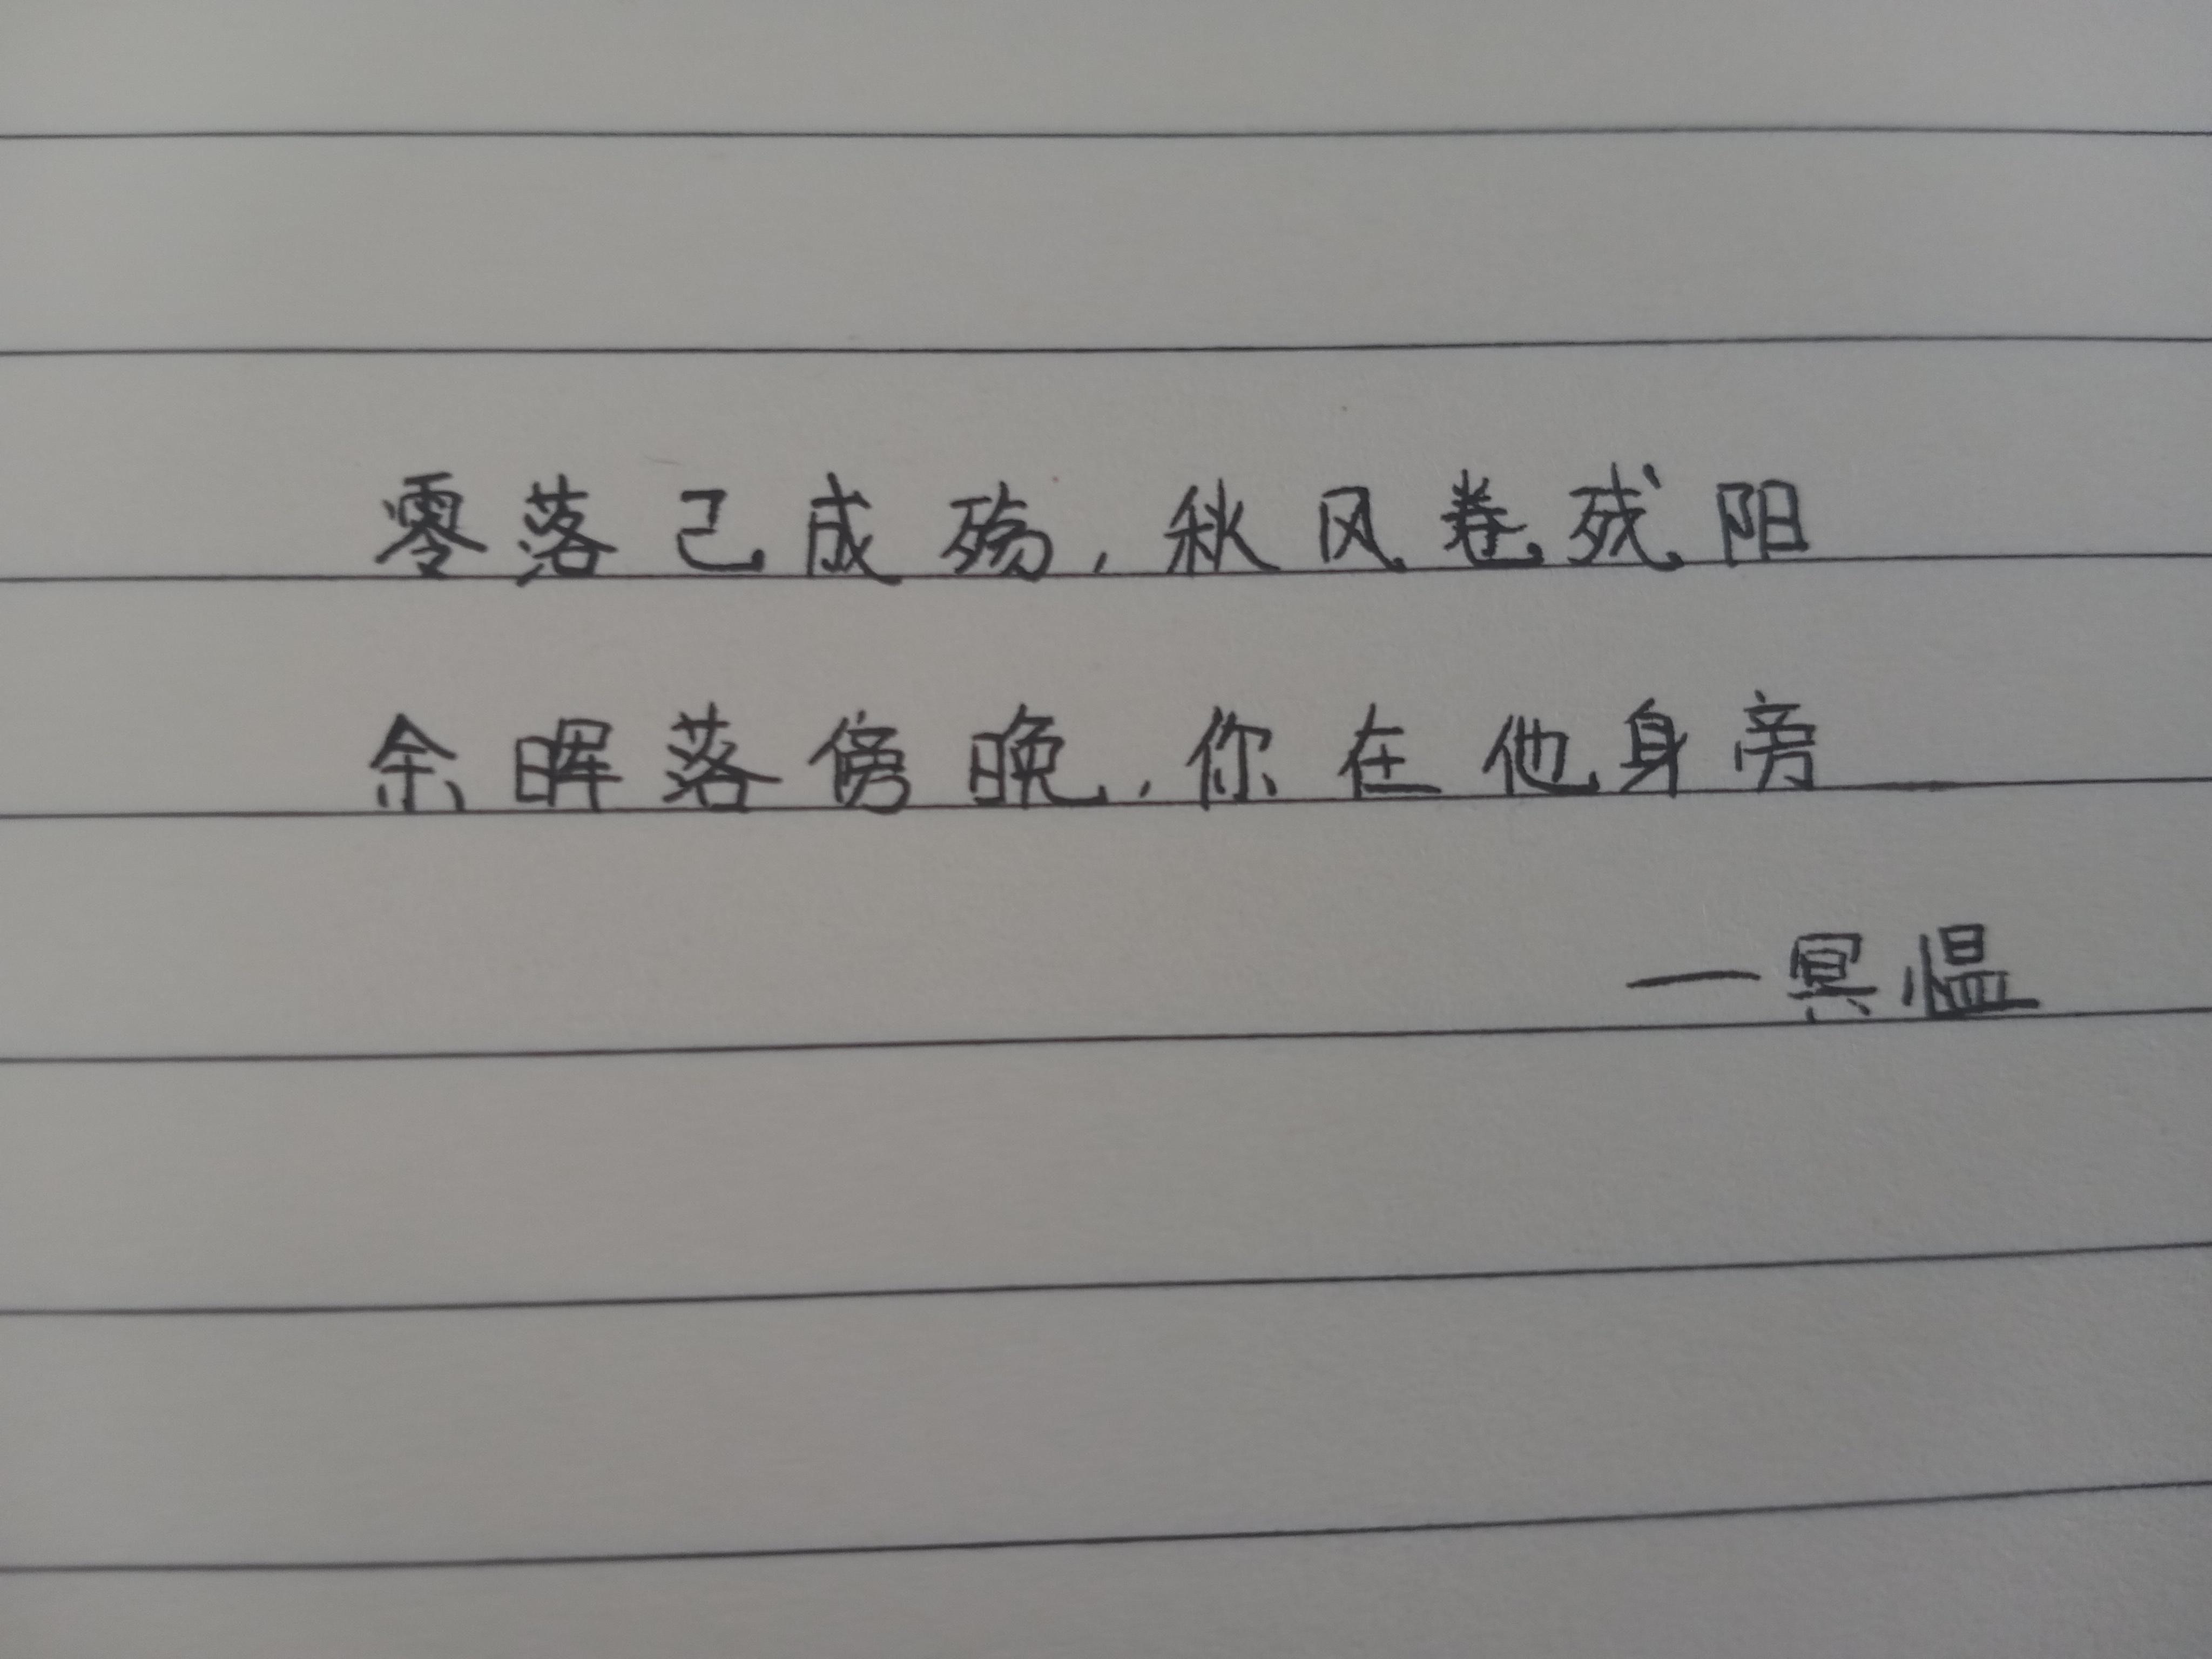 零落己成殇,秋风卷残阳
余晖落傍晚,你在他身旁
—冥愠